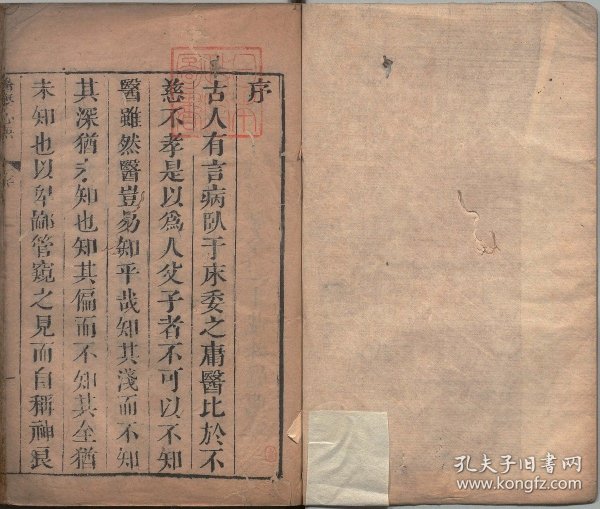 序
古人有言病臥于床委之庸醫比於不
慈不孝是以為人父子者不可以不知
醫雖然醫豈易知乎哉知其淺而不知
其深猶未知也知其偏而不知其全猶
未知也以卑鄙管窺之見而自稱神良
一
孔夫子旧书网
www.kongfz.com